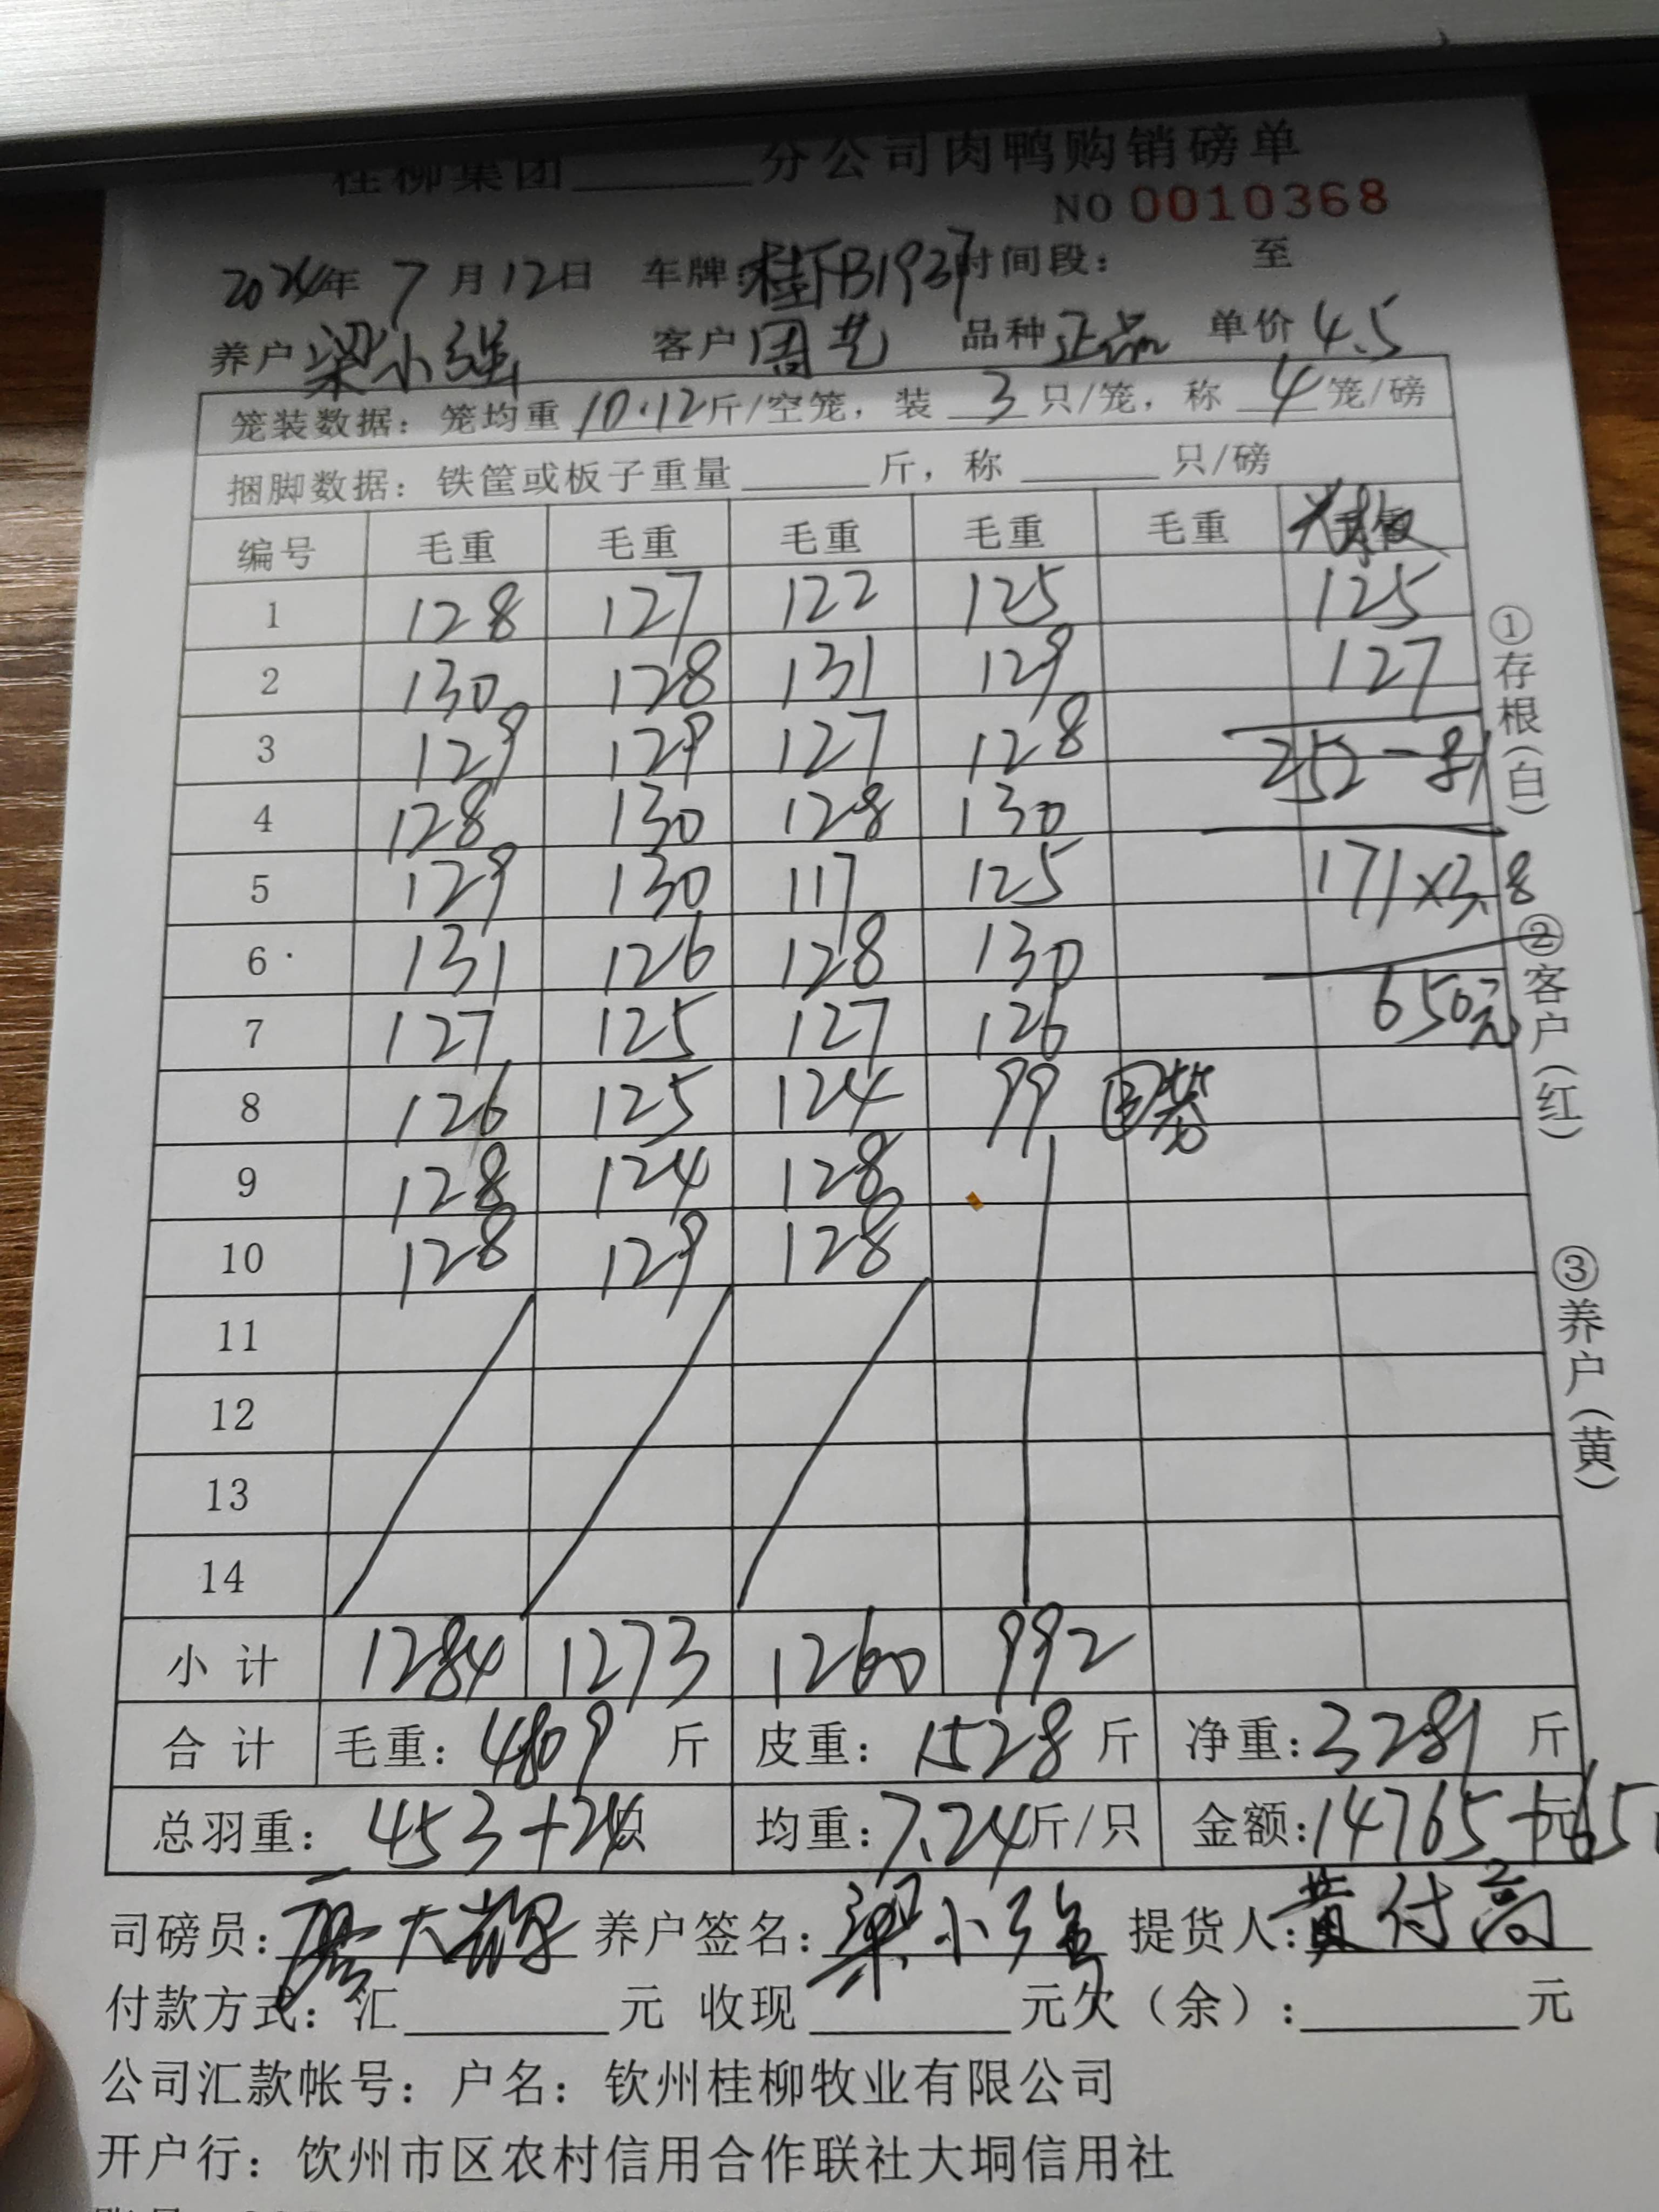 桂柳集团______分公司肉鸭购销磅单
NO 0010368
2024年 7月12日 车牌:桂FB1937 时间段: 至
养户 梁小强 客户 周艺 品种 正品 单价 4.5
笼装数据: 笼均重 10.12 斤/空笼, 装 3 只/笼, 称 4 笼/磅
捆脚数据: 铁筐或板子重量______斤, 称______只/磅
编号 毛重 毛重 毛重 毛重 毛重
1 128 127 122 125 125
2 130 128 131 129 127
3 129 129 127 128 252-81
4 128 130 128 130
5 129 130 117 125 171×3.8
6 131 126 128 130
7 127 125 127 126 650元
8 126 125 124 99
9 128 124 128
10 128 129 128
11
12
13
14
小计 1284 1273 1260 992
合计 毛重: 4809 斤 皮重: 1528 斤 净重: 3281 斤
总羽重: 453+24只 均重: 7.24斤/只 金额: 14765+65元
司磅员: 养户签名: 梁小强 提货人: 黄付高
付款方式: 汇______元 收现______元欠(余):______元
公司汇款帐号: 户名: 钦州桂柳牧业有限公司
开户行: 饮州市区农村信用合作联社大垌信用社
①存根(白)
②客户(红)
③养户(黄)